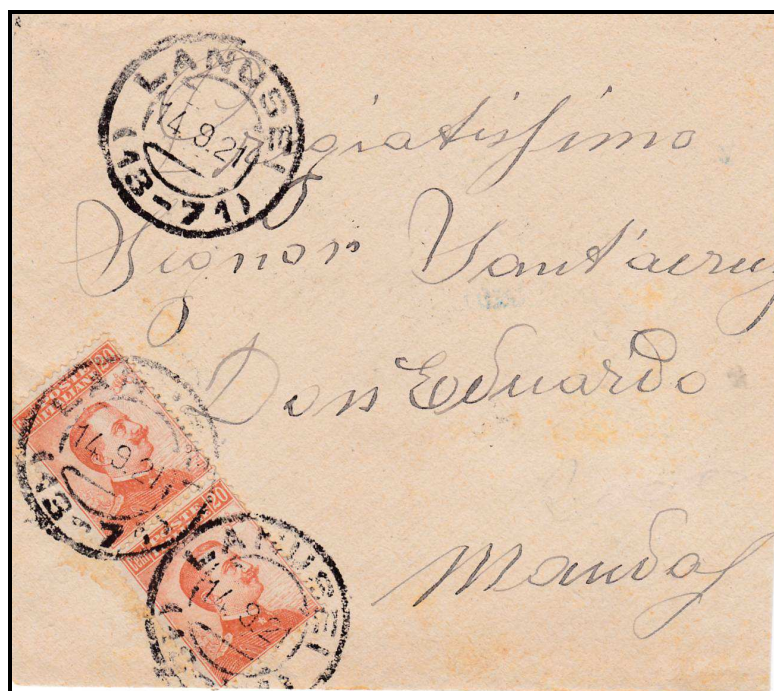 LANUSEI
14.9.21
(13-71)
Pregiatissimo
Signor Sant'acruz
Don Eduardo
Mandas
20
POSTE ITALIANE
LAN
14.9.21
(13-71)
20
POSTE
Cent
LANUSEI
14.9.21